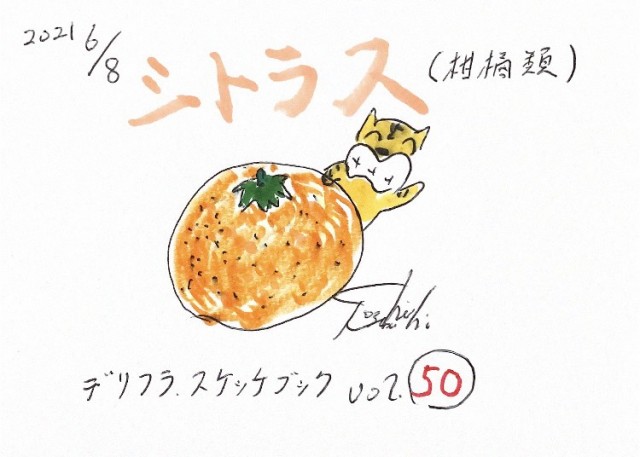 2021 6/8
シトラス (柑橘類)
Toshihi
デリフラ.スケッケブック vol.50